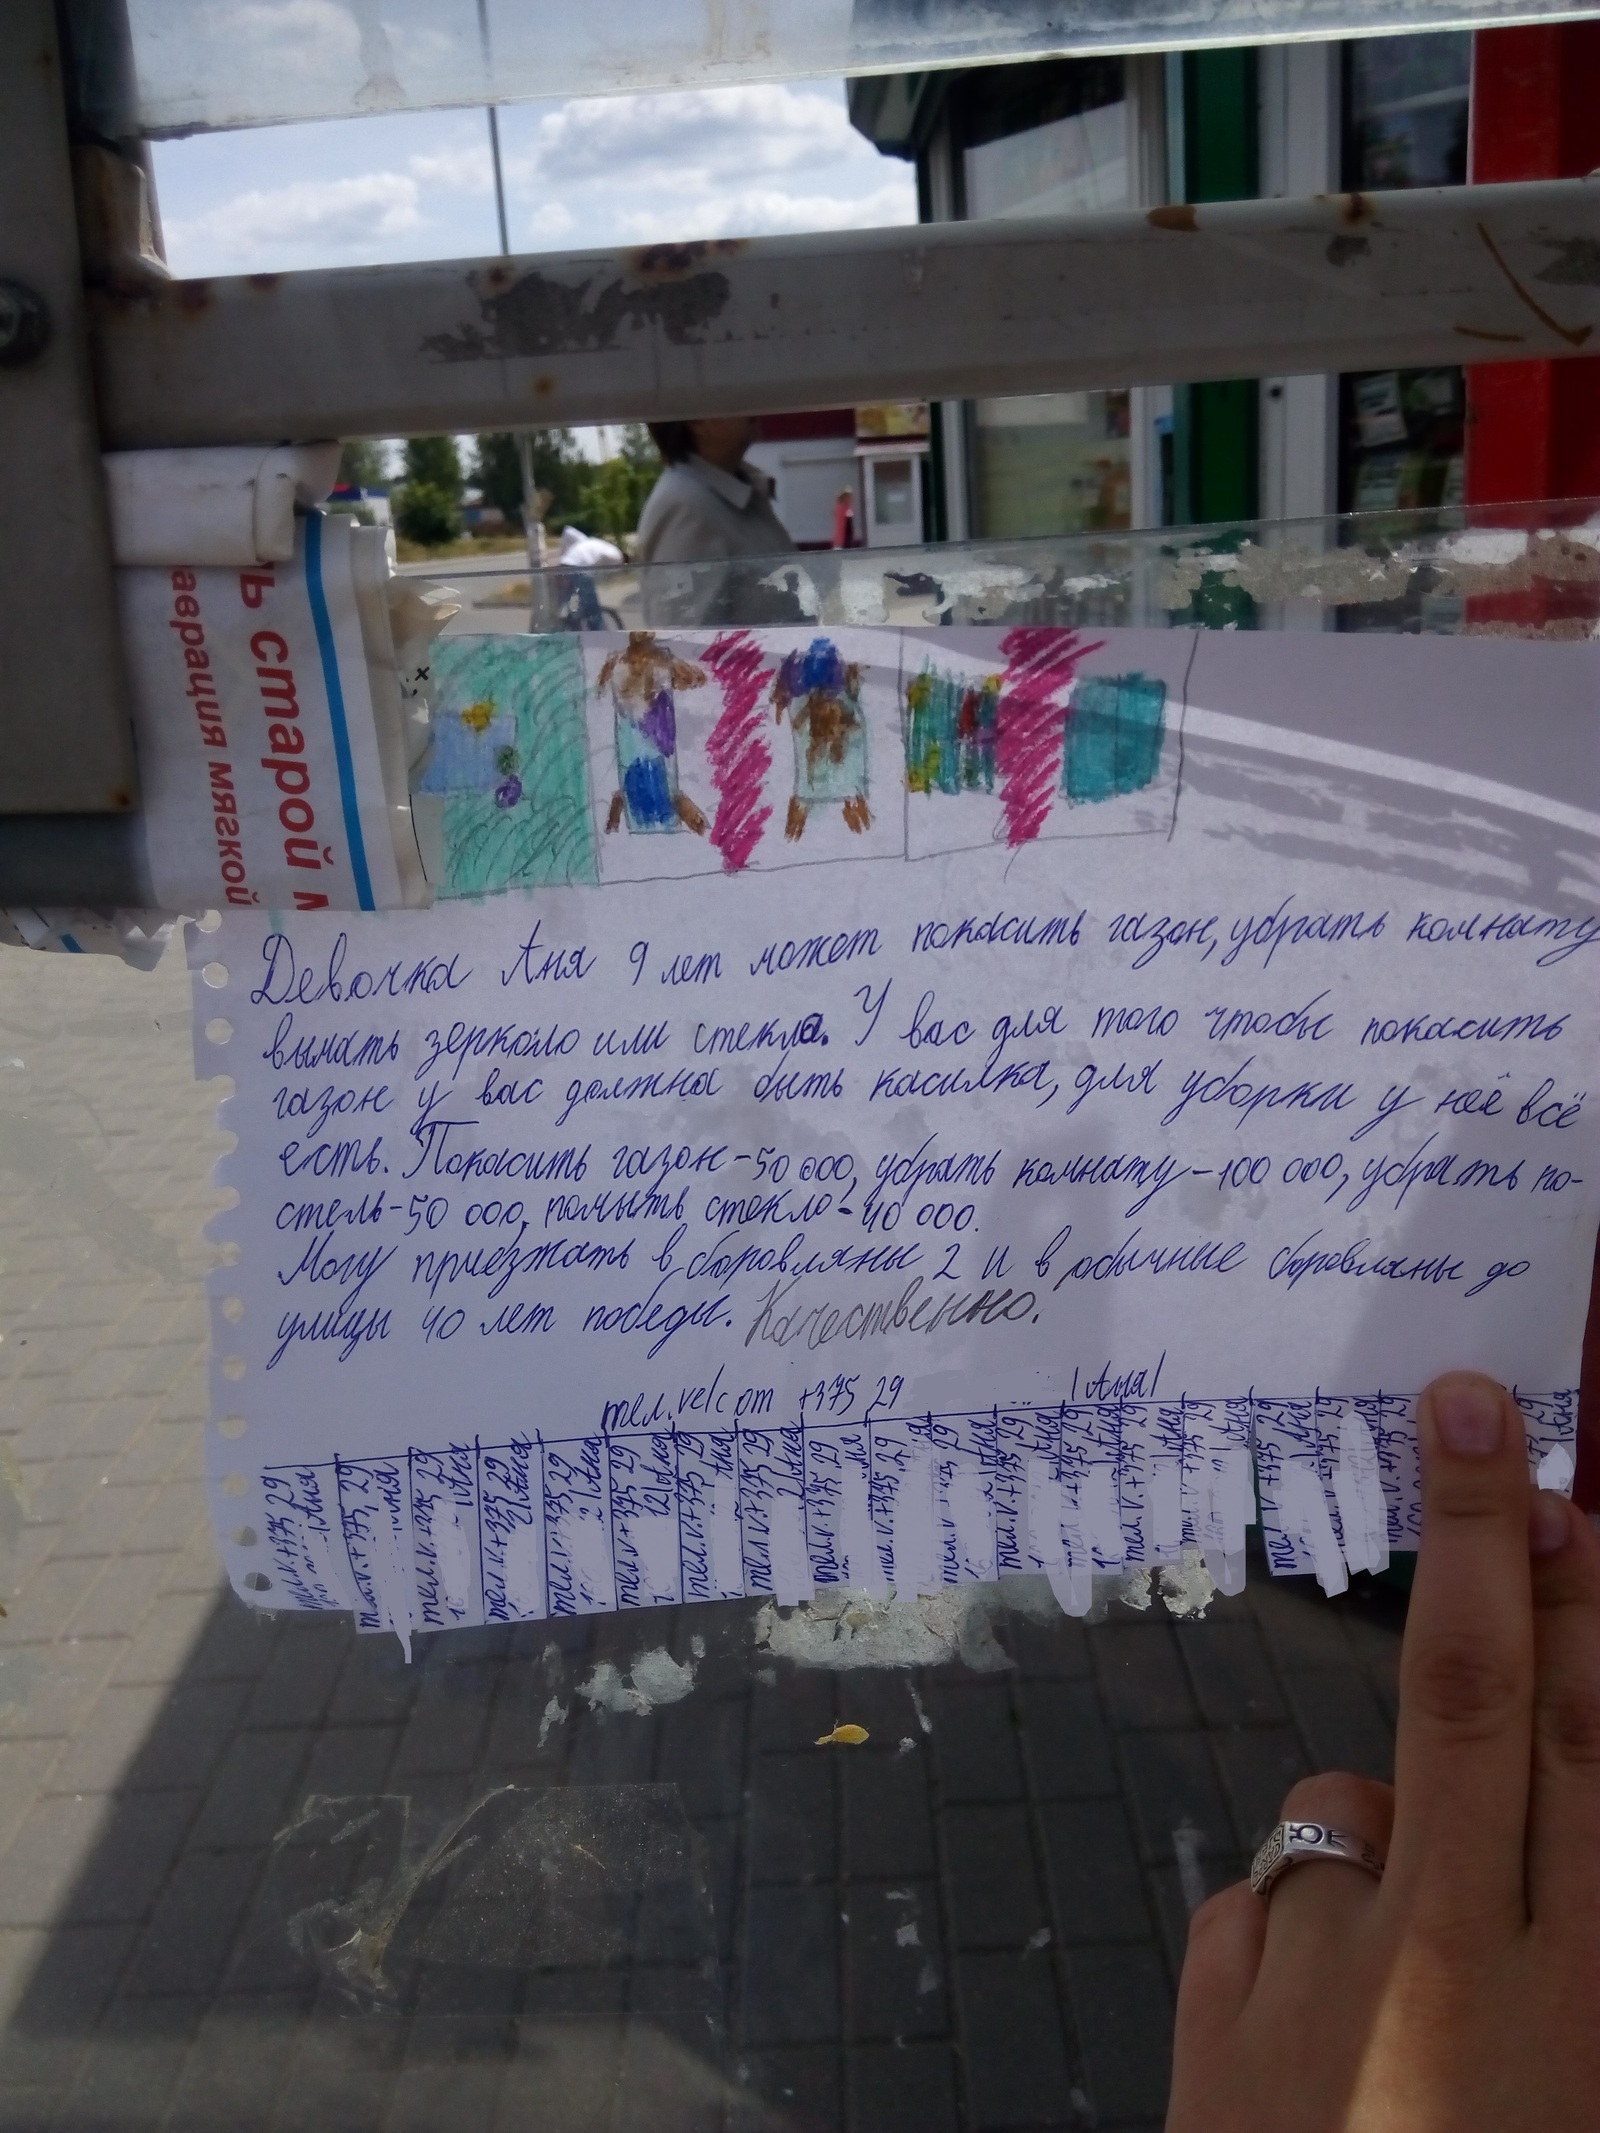 ь старой м
аерация мягкой
Девочка Аня 9 лет может покасить газон, убрать комнату
вымать зеркало или стекла. У вас для того чтобы покасить
газон у вас должна быть касилка, для уборки у неё всё
есть. Покасить газон-50 000, убрать комнату-100 000, убрать по-
стель-50 000, помыть стекло-40 000.
Могу приезжать в боровляны 2 и в обычные боровляны до
улицы 40 лет победы. Качественно.
тел. velcom +375 29 /Аня/
тел.v.+375 29 /Аня
тел.v.+375 29 Аня
тел.v.+375 29 /Аня
тел.v.+375 29 /Аня
тел.v.+375 29 /Аня
тел.v.+375 29 /Аня
тел.v.+375 29 Аня
тел.v.+375 29 /Аня
тел.v.+375 29 Аня
тел.v.+375 29
тел.v. 29 /Аня
тел.v.+375 29 /Аня
тел +375 29 /Аня
тел.v.+375 29 /Аня
тел.v.+375 29 /Аня
тел.v.+375 29 /Аня
тел.v.+375 29
тел.v.+375 29
29 /Аня